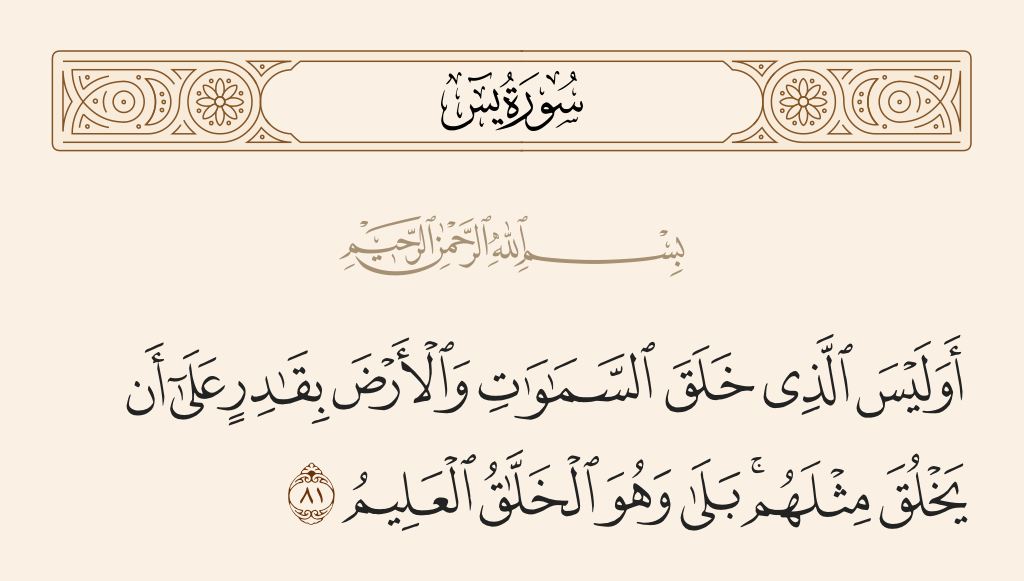 سُورَةُ يسٓ
بِسْمِ ٱللَّهِ ٱلرَّحْمَٰنِ ٱلرَّحِيمِ
أَوَلَيْسَ ٱلَّذِى خَلَقَ ٱلسَّمَٰوَٰتِ وَٱلْأَرْضَ بِقَٰدِرٍ عَلَىٰٓ أَن
يَخْلُقَ مِثْلَهُم ۚ بَلَىٰ وَهُوَ ٱلْخَلَّٰقُ ٱلْعَلِيمُ ٨١